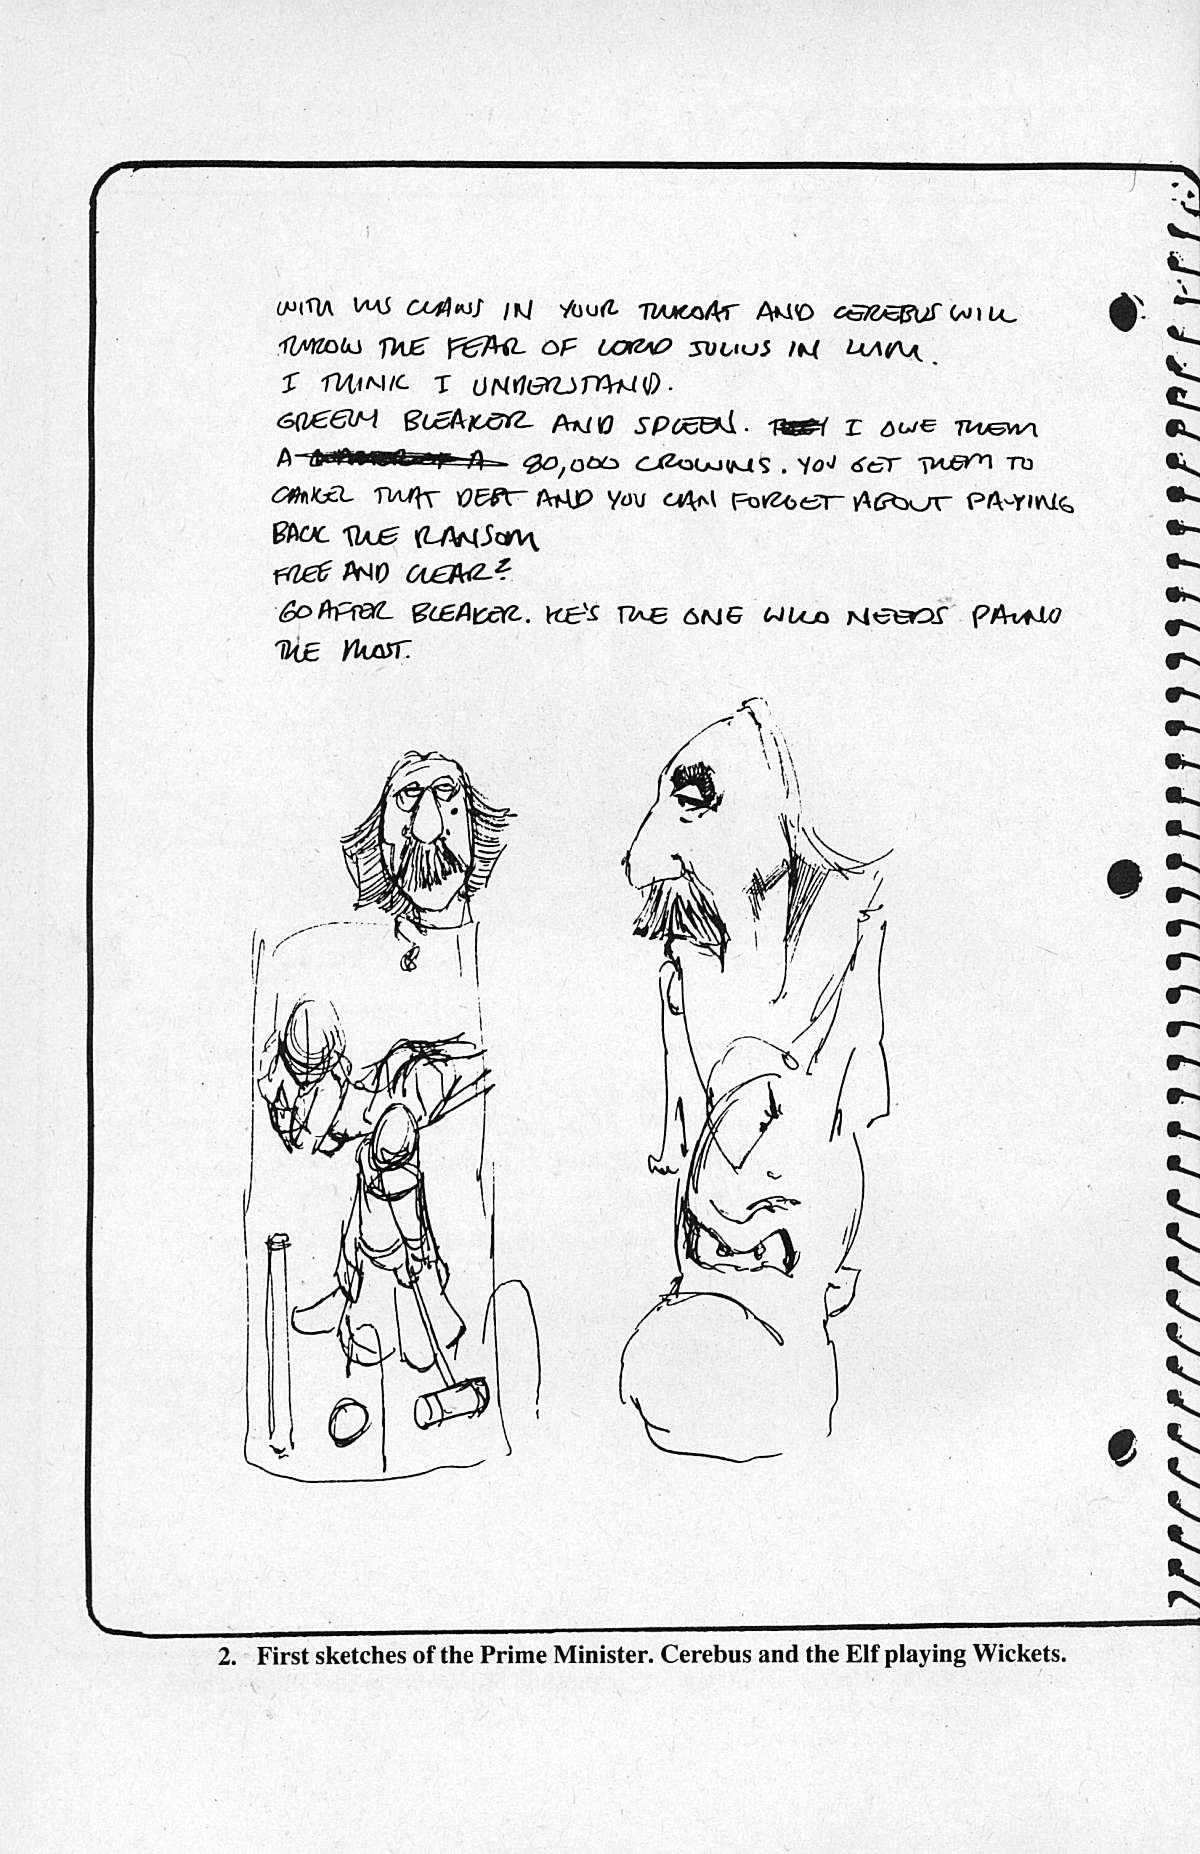 WITH HIS CLAWS IN YOUR THROAT AND CEREBUS WILL
THROW THE FEAR OF LORD JULIUS IN HIM.
I THINK I UNDERSTAND.
GREELY BLEAKER AND SPLEEN. I OWE THEM
A 80,000 CROWNS. YOU GET THEM TO
CANCEL THAT DEBT AND YOU CAN FORGET ABOUT PAYING
BACK THE RANSOM
FREE AND CLEAR?
GO AFTER BLEAKER. HE'S THE ONE WHO NEEDS PAUND
THE MOST.
2. First sketches of the Prime Minister. Cerebus and the Elf playing Wickets.